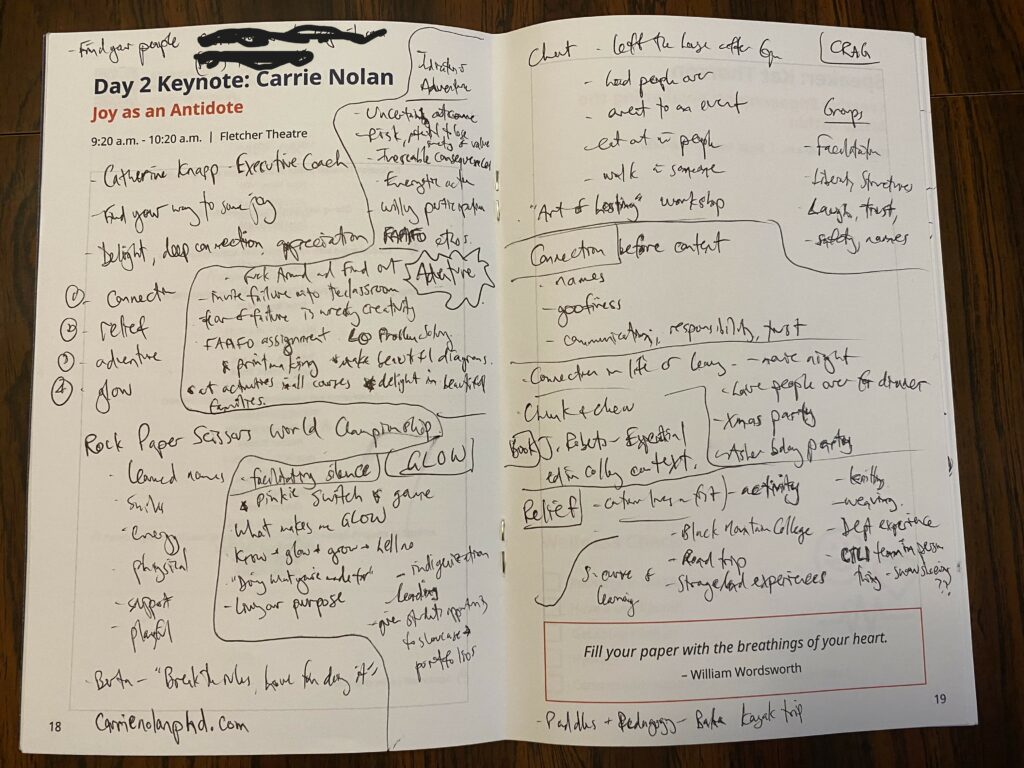 - Find your people
Day 2 Keynote: Carrie Nolan
Joy as an Antidote
9:20 a.m. - 10:20 a.m. | Fletcher Theatre
- Catherine Knapp - Executive Coach
- Find your way to some joy
- Delight, deep connection, appreciation
① - connectn
② - relief
③ - adventure
④ - glow
Adventure
- Uncertain outcome
- Risk,
- consequences
- Energetic action
- willing participation
FAAFO ethos.
Adventure
- Fuck Around and Find out
- invite failure into classroom
- fear of failure is wrecking creativity
- FAAFO assignment Problem Solving.
* printmaking * make beautiful diagrams.
* art activities in all courses * delight in beautiful
families.
Rock Paper Scissors World Championship
- learned names
- smiles
- energy
- physical
- support
- playful
GLOW
- facilitating silence
* pinkie switch * game
What makes me GLOW
- Know + glow + grow + hell no
- "Doing what you're made for"
- Live your purpose
- indigenization
leading
- give students opportunity
to showcase
portfolios
- "Break the rules, have fun doing it"
18
carrienolanphd.com
- left the house after 6pm
- had people over
- went to an event
- eat out w people
- walk w someone
- "Art of Hosting" workshop
CRAG
Groups
- Facilitator
- Liberty Structures
- Laugh, trust,
- safety, names
Connection before content
- names
- goofiness
- communication, responsibility, trust
- Connection in life or learning - movie night
- Have people over for dinner
- Xmas party
- Asher bday party
- Chunk & chew
Book J. Roberts - Experiential
ed in college context.
Relief - activity
- Black Mountain College
- Road trip
- Strange land experiences
S-curve of
learning
- knitting
- weaving
- Dept experience
- CTLI team in person
thing - snowshoeing
??
Fill your paper with the breathings of your heart.
– William Wordsworth
19
- Paddles + Pedagogy - kayak trip